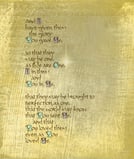 and I
have given them
the glory
You gave Me,
so that they
may be one,
as We are One.
I in them
and
You in Me,
that they may be brought to
perfection as one,
that the world may know
that You sent Me
and that
You loved them
even as You
loved Me.